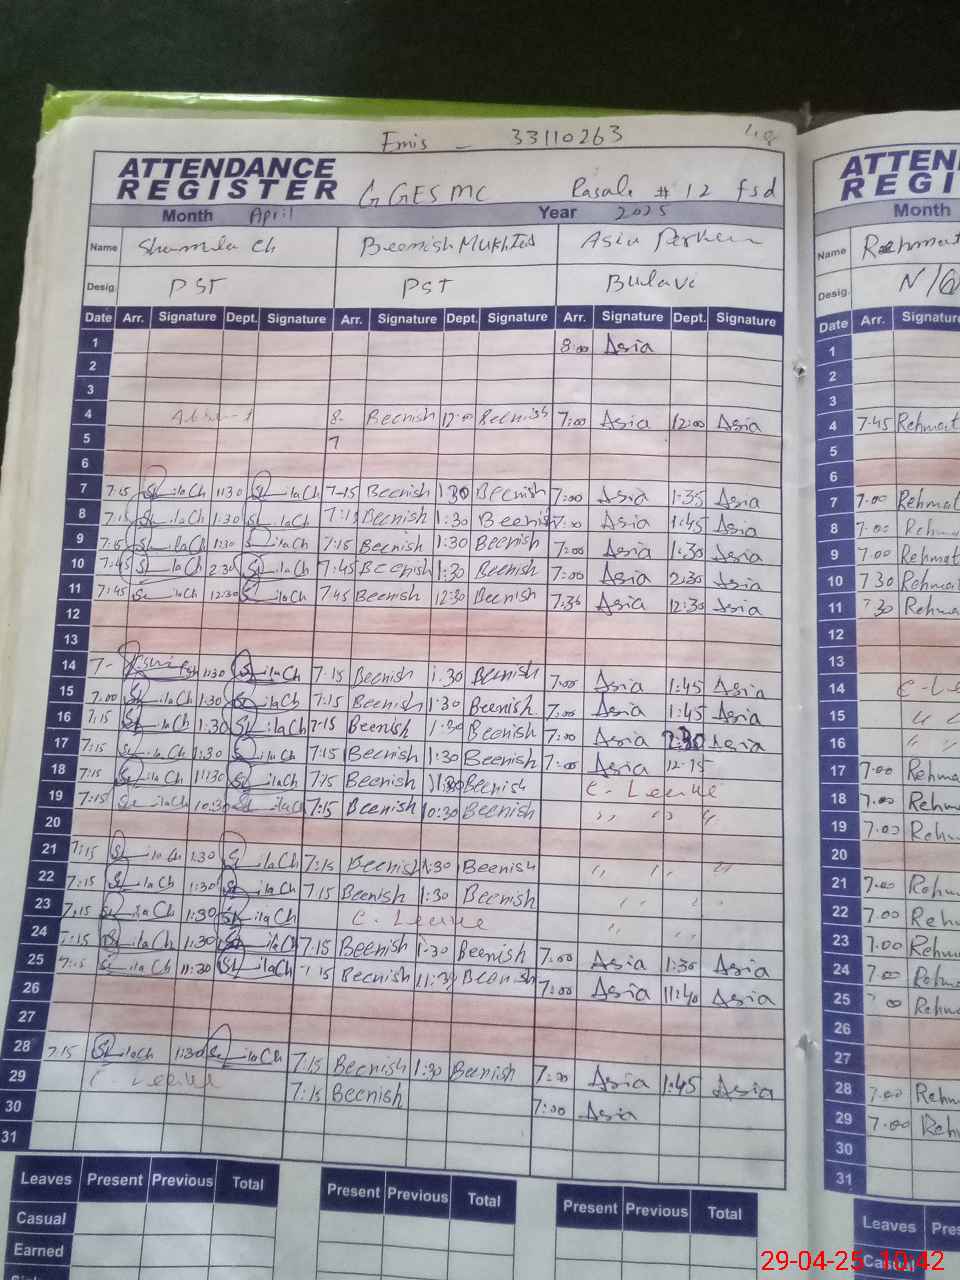 Emis - 33110263 48
ATTENDANCE REGISTER GGES MC # 12 fsd
Month April Year 2025
Name Shamila Ch Beenish Mukhtar Asia
Desig. PST PST
Date Arr. Signature Dept. Signature Arr. Signature Dept. Signature Arr. Signature Dept. Signature
1 8:00 Asia
2
3
4 8- Beenish 12:00 Beenish 7:00 Asia 12:00 Asia
5 7
6
7 7:15 ila Ch 1:30 ila Ch 7-15 Beenish 1:30 Beenish 7:00 Asia 1:35 Asia
8 7:15 ila Ch 1:30 ila Ch 7:15 Beenish 1:30 Beenish 7:00 Asia 1:45 Asia
9 7:15 ila Ch 1:30 ila Ch 7:15 Beenish 1:30 Beenish 7:00 Asia 1:30 Asia
10 7:45 ila Ch 2:30 ila Ch 7:45 Beenish 1:30 Beenish 7:00 Asia 2:30 Asia
11 7:45 ila Ch 12:30 ila Ch 7:45 Beenish 12:30 Beenish 7:36 Asia 12:30 Asia
12
13
14 7- 1:30 ila Ch 7:15 Beenish 1:30 Beenish 7:00 Asia 1:45 Asia
15 7:00 ila Ch 1:30 ila Ch 7:15 Beenish 1:30 Beenish 7:00 Asia 1:45 Asia
16 7:15 ila Ch 1:30 ila Ch 7:15 Beenish 1:30 Beenish 7:00 Asia 2:30 Asia
17 7:15 ila Ch 1:30 ila Ch 7:15 Beenish 1:30 Beenish 7:00 Asia 12-15
18 7:15 ila Ch 11:30 ila Ch 7:15 Beenish 11:30 Beenish C-Leave
19 7:15 ila Ch 10:30 ila Ch 7:15 Beenish 10:30 Beenish " " "
20
21 7:15 ila Ch 1:30 ila Ch 7:15 Beenish 1:30 Beenish " " "
22 7:15 ila Ch 1:30 ila Ch 7:15 Beenish 1:30 Beenish " " "
23 7:15 ila Ch 1:30 ila Ch C-Leave " " "
24 7:15 ila Ch 1:30 ila Ch 7:15 Beenish 1:30 Beenish 7:00 Asia 1:30 Asia
25 7:15 ila Ch 11:30 ila Ch 7:15 Beenish 11:30 Beenish 7:00 Asia 11:40 Asia
26
27
28 7:15 ila Ch 1:30 ila Ch 7:15 Beenish 1:30 Beenish 7:00 Asia 1:45 Asia
29 C-Leave 7:15 Beenish 7:00 Asia
30
31
Leaves Present Previous Total Present Previous Total Present Previous Total
Casual
Earned
ATTEN
REGI
Month
Name Rehmat
Desig. N/Q
Date Arr. Signatur
1
2
3
4 7:45 Rehmat
5
6
7 7:00 Rehmat
8 7:00 Rehm
9 7:00 Rehmat
10 7:30 Rehmat
11 7:30 Rehma
12
13
14 C-Le
15 " "
16 " "
17 7:00 Rehma
18 7:00 Rehma
19 7:00 Rehma
20
21 7:00 Rehma
22 7:00 Rehm
23 7:00 Rehm
24 7:00 Rehma
25 7:00 Rehma
26
27
28 7:00 Rehm
29 7:00 Rehm
30
31
Leaves Pres
Casual
29-04-25 10:42